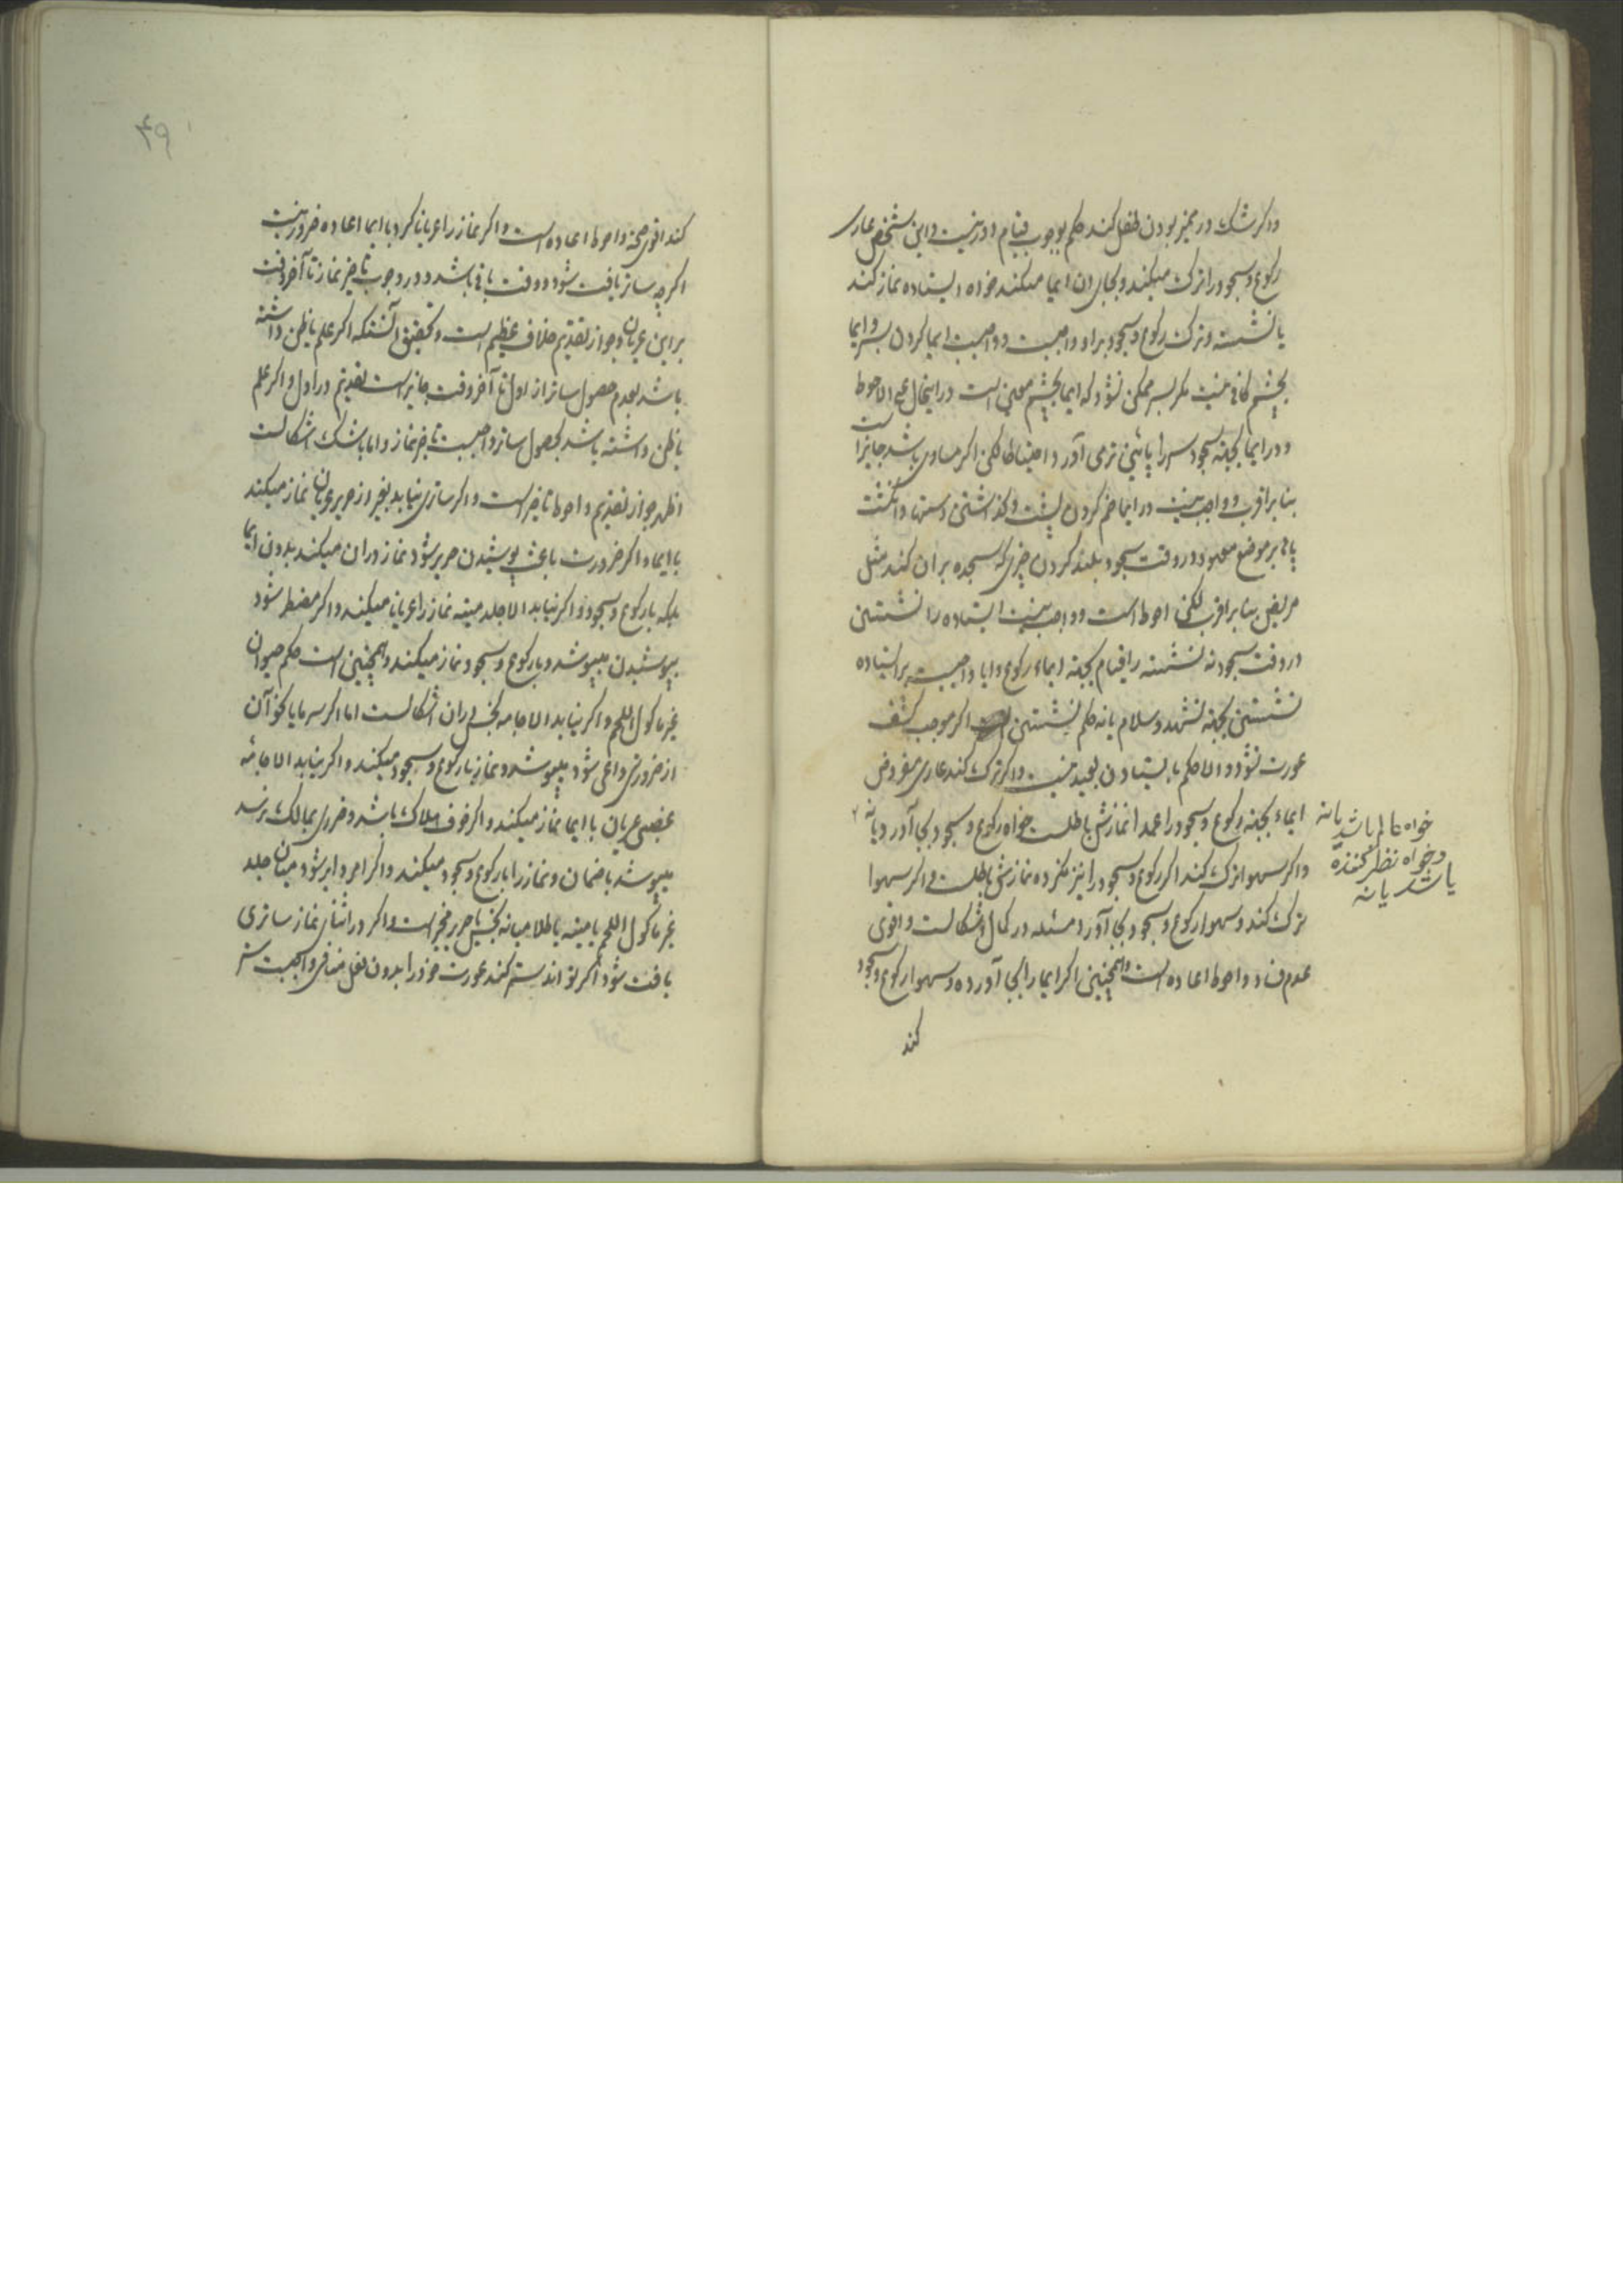 و اگر شک در ممیز بودن طفل کند حکم بوجوب قیام دور نیست و این شخص عاری
رکوع و سجود را ترک میکند و بجای ان ایما میکند خواه ایستاده نماز کند
یا نشسته و ترک رکوع و سجود بر او واجبست و واجبست ایما کردن بسر و ایما
بچشم کافی نیست مکر بسر ممکن نشود که ایما بچشم معین است در اینحال علی الاحوط
و در ایما بجهته سجود سر را پائین تر می آورد احتیاطا لکن اکر مساوی باشد جایز است
بنا بر اقرب و واجب نیست در ایما خم کردن پشت و کذاشتن دستها و انکشت
پاها بر موضع معهود و در وقت سجود بلند کردن چیزی که سجده بر ان کند مثل
مریض بنا بر اقرب لکن احوط است و واجب نیست ایستاده را نشستن
در وقت سجود نه نشسته را قیام بجهته ایماء رکوع و ایا واجبست بر ایستاده
نشستن بجهته تشهد و سلام یا نه حکم بنشستن اکر موجب کشف
عورت نشود و الا حکم بایستادن بعید نیست و اکر ترک کند عاری مفروض
ایماء بجهته رکوع و سجود را عمدا نمازش باطلست خواه رکوع و سجود بجا آورد یا نه
خواه عالم باشد یا نه
و خواه نظر کننده
باشد یا نه
و اکر سهوا ترک کند اکر رکوع و سجود را نیز نکرده نمازش باطلست و اکر سهوا
ترک کند و سهوا رکوع و سجود بجا آورد مسئله در کمال اشکالست و اقوی
عدم فساد و احوط اعاده است و همچنین اکر ایما را بجا آورده و سهوا رکوع و سجود
کند
۴۹
کند اقوی صحة و احوط اعاده است و اکر نماز را عریانا کرد با ایما اعاده ضرور نیست
اکرچه ساتر یافت شود و وقت باقی باشد و در وجوب تاخیر نماز تا آخر وقت
بر این عریان و جواز تقدیم خلاف عظیم است و تحقیق آنستکه اکر علم یا ظن داشته
باشد بعدم حصول ساتر از اول تا آخر وقت جایز است تقدیم در اول و اکر علم
یا ظن داشته باشد بحصول ساتر واجبست تاخیر نماز و اما با شک اشکالست
اظهر جواز تقدیم و احوط تاخیر است و اکر ساتری نیابد بغیر از حریر عریان نماز میکند
با ایما و اکر ضرورت باعث پوشیدن حریر شود نماز در ان میکند بدون ایما
بلکه با رکوع و سجود و اکر نیابد الا جلد میته نماز را عریانا میکند و اکر مضطر شود
بپوشیدن میپوشد و با رکوع و سجود نماز میکند و همچنین است حکم حیوان
غیر ماکول اللحم و اکر نیابد الا جامه نجس در ان اشکالست اما اکر سرما یا نحو آن
از ضرورتی داعی شود میپوشد و نماز با رکوع و سجود میکند و اکر نیابد الا جامهٔ
غصبی عریان با ایما نماز میکند و اکر خوف هلاک باشد و ضرری بمالک نرسد
میپوشد با ضمان و نماز را با رکوع و سجود میکند و اکر امر دایر شود میان جلد
غیر ماکول اللحم یا میته یا طلا میانه نجس یا حریر مخیر است و اکر در اثنای نماز ساتری
یافت شود اکر تواند ستر کند عورت خود را بدون فعل منافی واجبست ستر